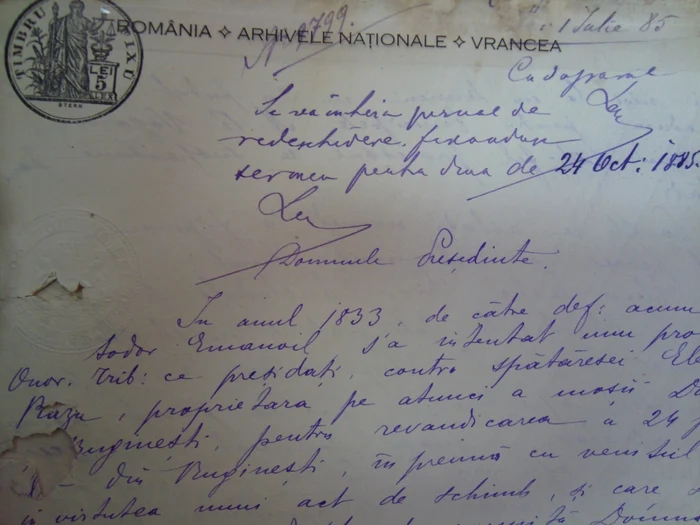 TIMBRU FIXU
LEI
5
STERN
ROMÂNIA ✧ ARHIVELE NAȚIONALE ✧ VRANCEA
1 Iulie 85
Cu dosarul
Se va încheia jurnal de
redeschidere, fixându
termen pentru diua de 24 Oct: 1885.
Domnule Președinte.
In anul 1833, de către def: acum
Todor Emanoil s'a intentat unu pro
Onor. Trib: ce președați, contra spătăresei Ele
Razu, proprietara pe atunci a moșii
Ruginești, pentru revandicarea a 24
din Ruginești, împreună cu venitul
in virtutea unui act de schimb, și care